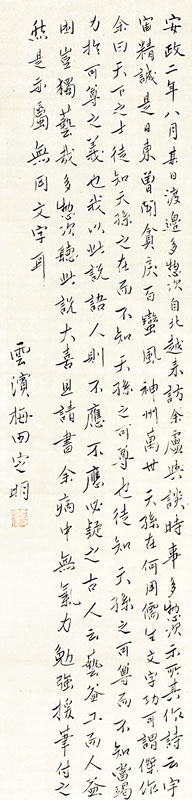 安政二年八月某日渡邉多惣次自北越来訪余廬與談時事多惣次示所其作詩云宇
宙精誠是日東曽聞貪戻百蠻風神州萬世天孫在何用儒生文字功可謂傑作
余曰天下之士徒知天孫之在而不知天孫之可尊也徒知天孫之可尊而不知當竭
力於可尊之義也我以此説語人則不應不應必疑之古人云藝益工而人益
困豈獨藝哉多惣次聴此説大喜且請書余病中無氣力勉強援筆付之
然是示廬無同文字耳
雲濱梅田定明